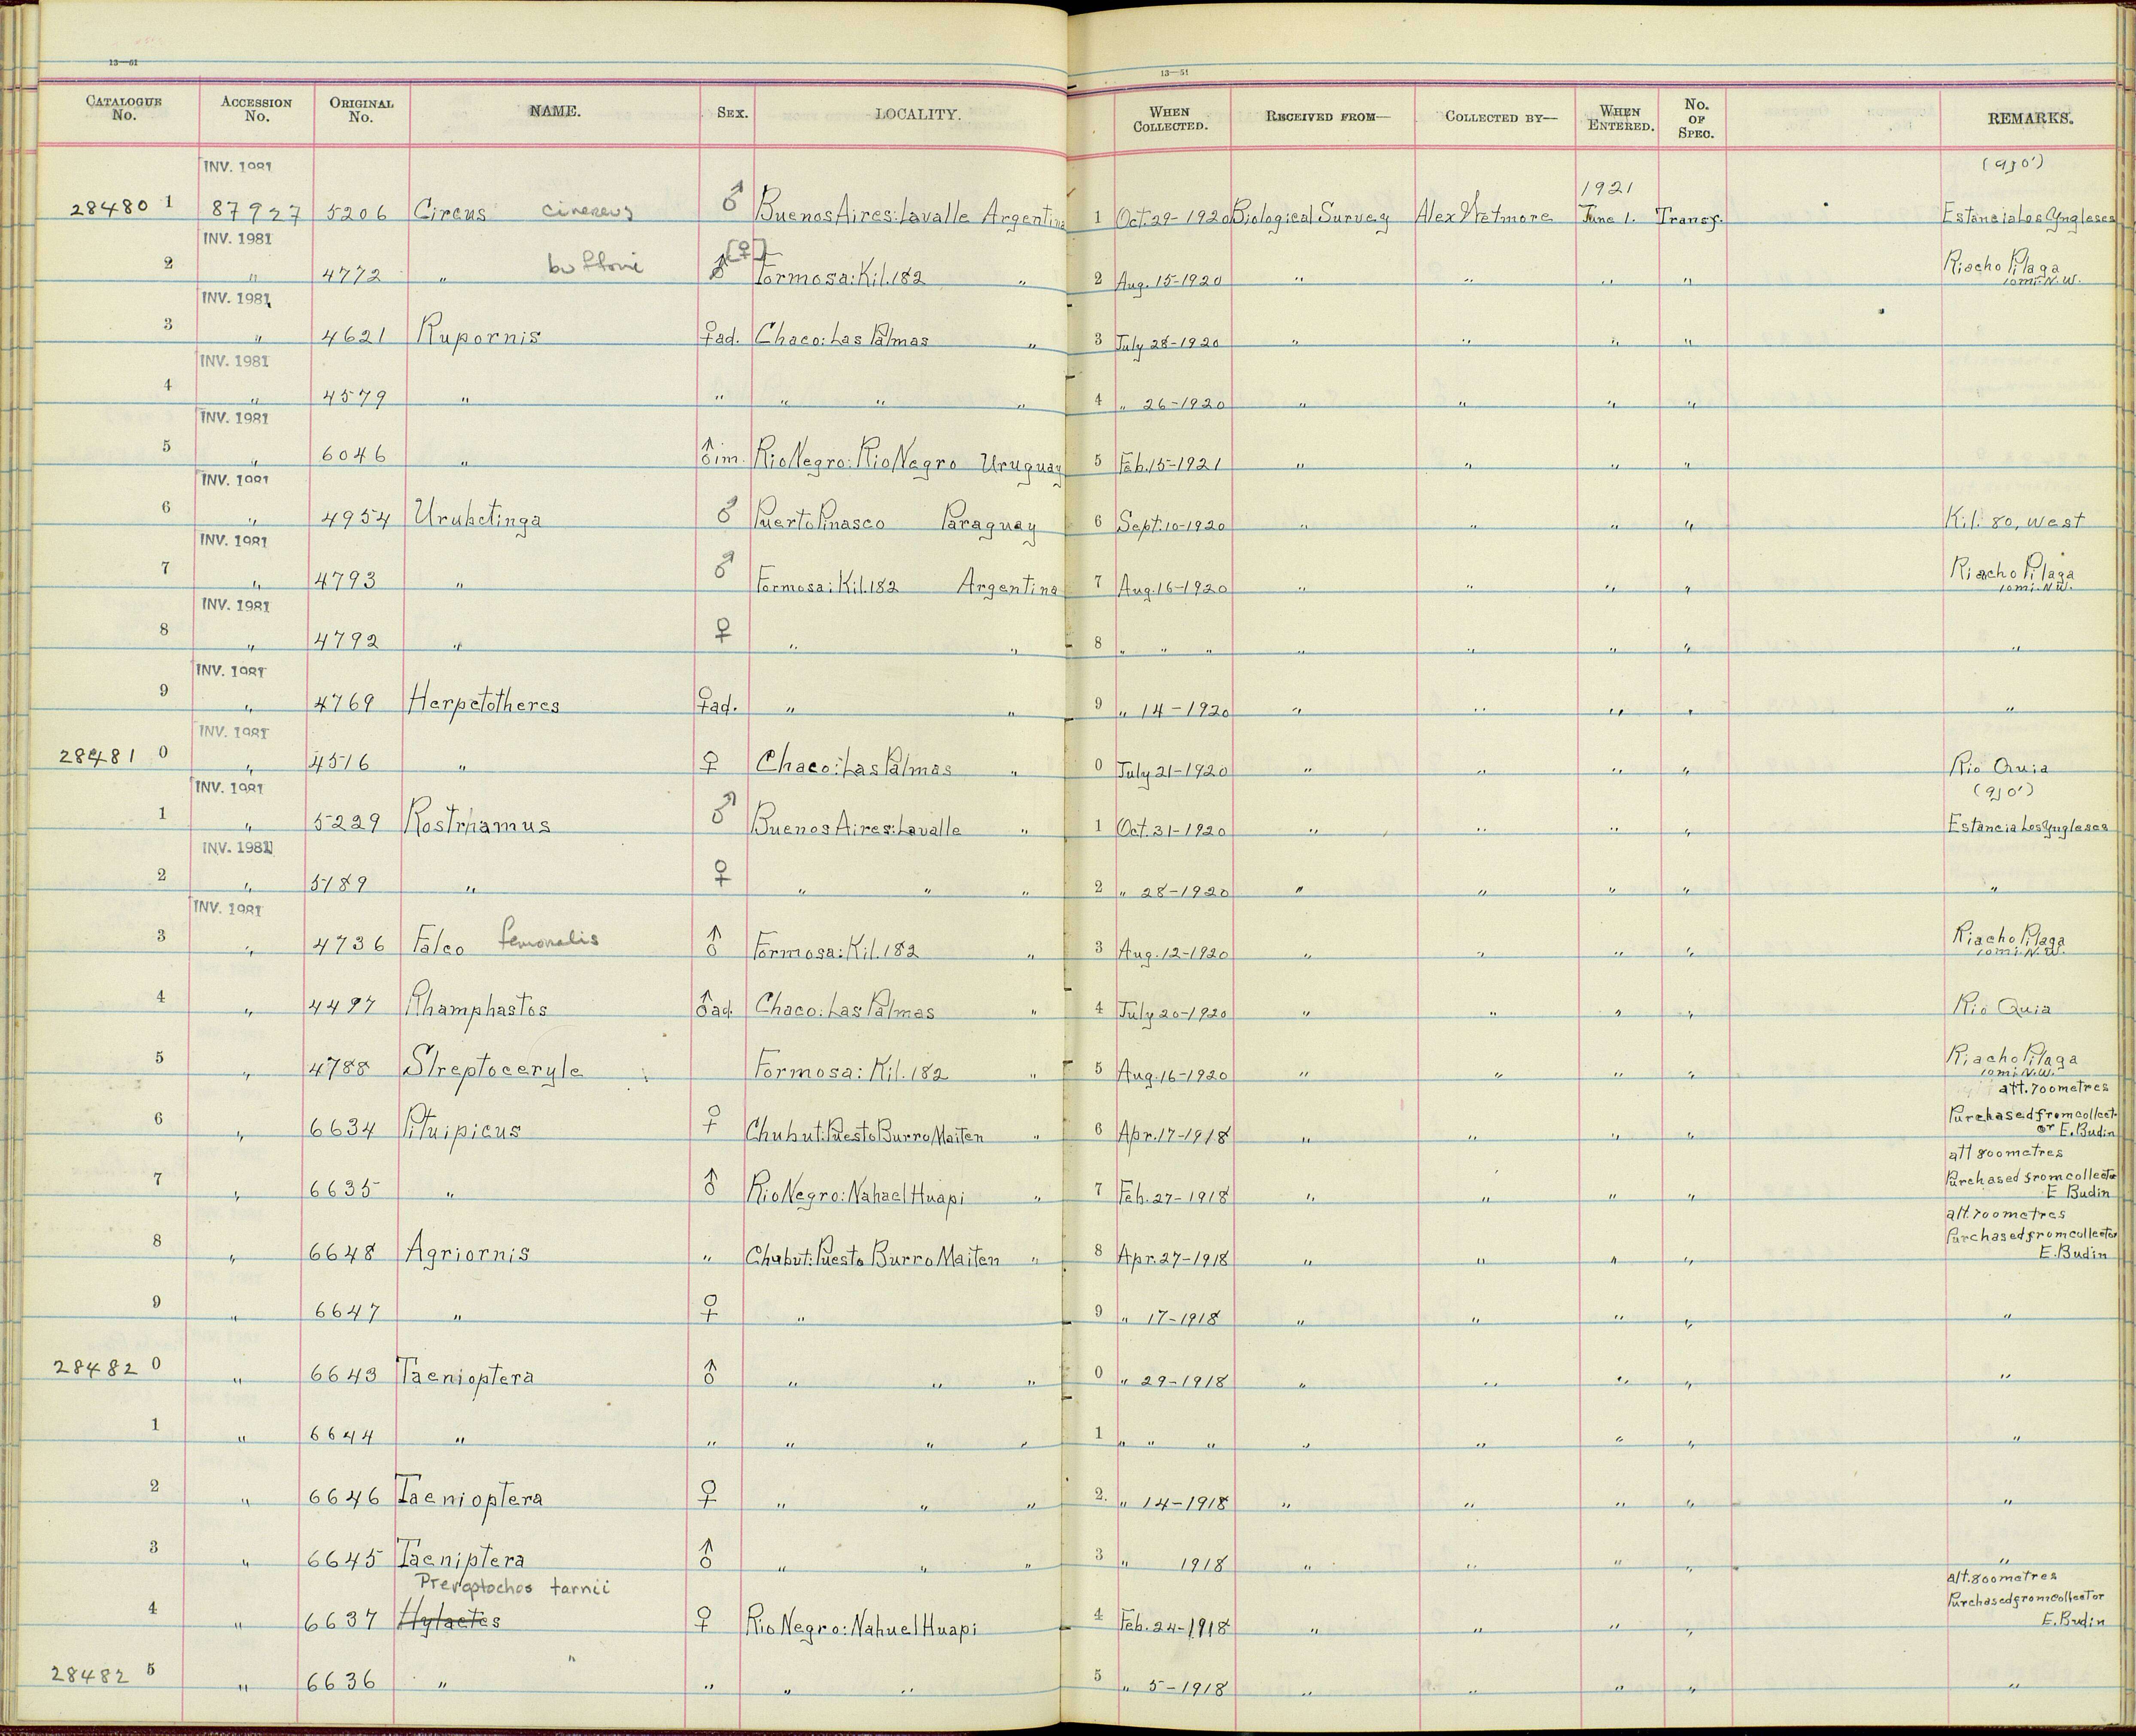 13—51 13—51
CATALOGUE No. ACCESSION No. ORIGINAL No. NAME. SEX. LOCALITY. WHEN COLLECTED. RECEIVED FROM— COLLECTED BY— WHEN ENTERED. No. OF SPEC. REMARKS.
INV. 1981 1921 (ajo')
28480 1 87927 5206 Circus cinereus ♂ Buenos Aires: Lavalle Argentina 1 Oct. 29-1920 Biological Survey Alex Wetmore June 1. Transf. Estancia Los Ynglases
INV. 1981
2 " 4772 " buffoni ♂ [♀] Formosa: Kil. 182 " 2 Aug. 15-1920 " " " " Riacho Pilaga 10 mi. N.W.
INV. 1981
3 " 4621 Rupornis ♀ad. Chaco: Las Palmas " 3 July 28-1920 " " " "
INV. 1981
4 " 4579 " " " " " 4 " 26-1920 " " " "
INV. 1981
5 " 6046 " ♂im. Rio Negro: Rio Negro Uruguay 5 Feb. 15-1921 " " " "
INV. 1981
6 " 4954 Urubetinga ♂ Puerto Pinasco Paraguay 6 Sept. 10-1920 " " " " Kil. 80, west
INV. 1981
7 " 4793 " ♂ Formosa: Kil. 182 Argentina 7 Aug. 16-1920 " " " " Riacho Pilaga 10 mi. N.W.
INV. 1981
8 " 4792 " ♀ " " 8 " " " " " " " "
INV. 1981
9 " 4769 Herpetotheres ♀ad. " " 9 " 14-1920 " " " " "
INV. 1981
28481 0 " 4516 " ♀ Chaco: Las Palmas " 0 July 21-1920 " " " " Rio Quia
INV. 1981 (ajo')
1 " 5229 Rostrhamus ♂ Buenos Aires: Lavalle " 1 Oct. 31-1920 " " " " Estancia Los Ynglases
INV. 1981
2 " 5189 " ♀ " " " 2 " 28-1920 " " " " "
INV. 1981
3 " 4736 Falco femoralis ♂ Formosa: Kil. 182 " 3 Aug. 12-1920 " " " " Riacho Pilaga 10 mi. N.W.
4 " 4497 Rhamphastos ♂ad. Chaco: Las Palmas " 4 July 20-1920 " " " " Rio Quia
5 " 4788 Streptoceryle Formosa: Kil. 182 " 5 Aug. 16-1920 " " " " Riacho Pilaga 10 mi. N.W.
alt. 700 metres
6 " 6634 Pituipicus ♀ Chubut: Puesto Burro Maiten " 6 Apr. 17-1918 " " " " Purchased from collector E. Budin
alt 800 metres
7 " 6635 " ♂ Rio Negro: Nahael Huapi " 7 Feb. 27-1918 " " " " Purchased from collector E Budin
alt. 700 metres
8 " 6648 Agriornis " Chubut: Puesto Burro Maiten " 8 Apr. 27-1918 " " " " Purchased from collector E. Budin
9 " 6647 " ♀ " 9 " 17-1918 " " " " "
28482 0 " 6643 Taenioptera ♂ " " " 0 " 29-1918 " " " " "
1 " 6644 " " " " " 1 " " " " " " " "
2 " 6646 Taenioptera ♀ " " " 2. " 14-1918 " " " " "
3 " 6645 Taeniptera ♂ " " " 3 " 1918 " " " " "
Preroptochos tarnii alt. 800 metres
4 " 6637 Hylactes ♀ Rio Negro: Nahuel Huapi 4 Feb. 24-1918 " " " " Purchased from collector E. Budin
28482 5 " 6636 " " " " " 5 " 5-1918 " " " " "